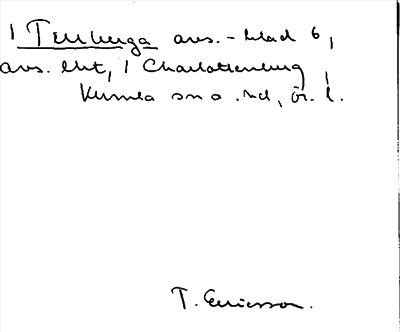 1 Tenberga avs. - blad 6,
avs. lht, 1 Charlottenburg,
Kumla sn o. hd, Ör. l.
T. Ericsson.